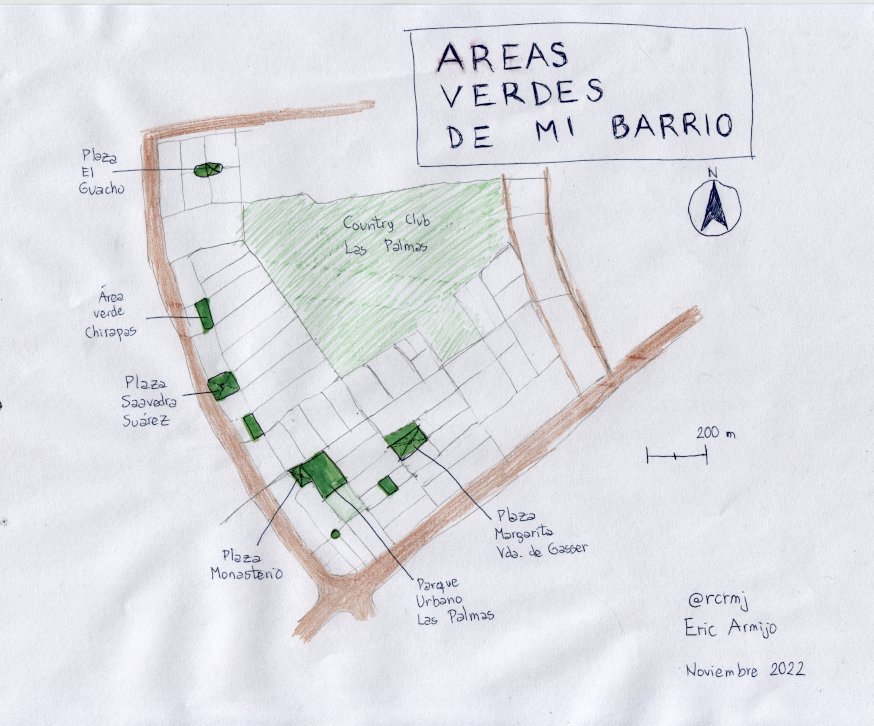 AREAS
VERDES
DE MI BARRIO
N
Plaza
El
Guacho
Country Club
Las Palmas
Área
verde
Chirapas
Plaza
Saavedra
Suárez
200 m
Plaza
Margarita
Vda. de Gasser
Plaza
Monasterio
Parque
Urbano
Las Palmas
@rcrmj
Eric Armijo
Noviembre 2022